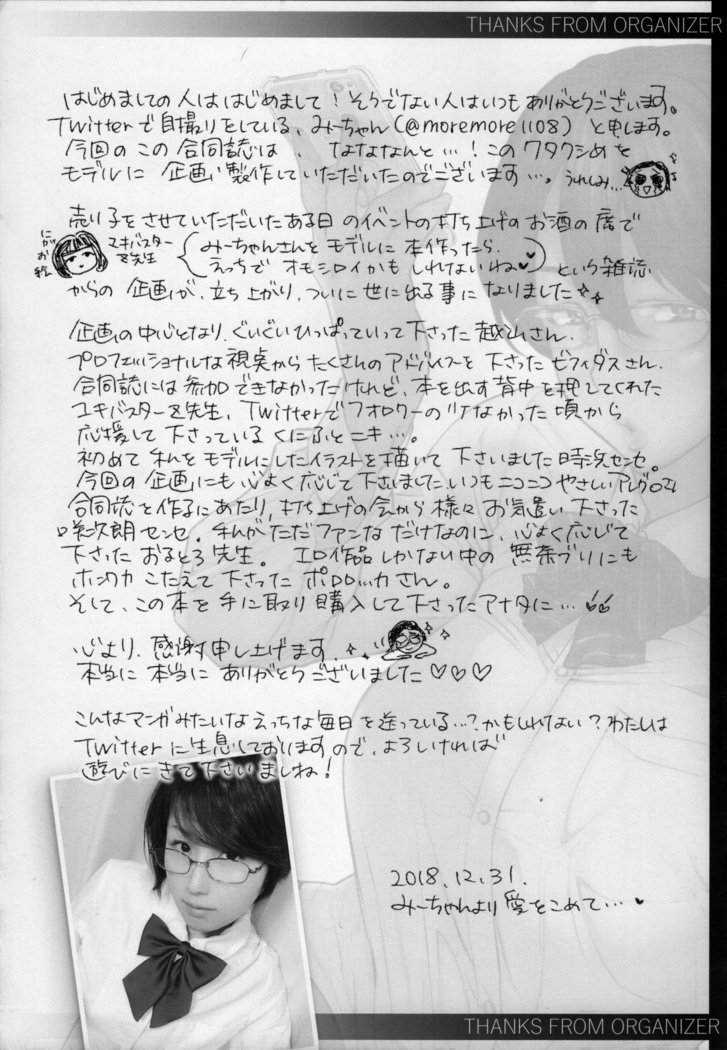 THANKS FROM ORGANIZER
はじめましての人ははじめまして！そうでない人はいつもありがとうございます。
Twitterで自撮りをしている、みーちゃん(@moremore1108)と申します。
今回のこの合同誌は、なななんと…！このワタクシめを
モデルに企画い製作していただいたのでございます…。うれしみ…
売り子をさせていただいたある日のイベントの打ち上げのお酒の席で
にがお絵
ユキバスターZ先生
みーちゃんさんをモデルに本作ったら、
えっちでオモシロイかもしれないね♥♥
という雑談
からの企画が、立ち上がり、ついに世に出る事になりました
企画の中心となり、ぐいぐいひっぱっていって下さった越山さん、
プロフェッショナルな視点からたくさんのアドバイスを下さったゼフィダスさん、
合同誌には参加できなかったけれど、本を出す背中を押してくれた
ユキバスターZ先生、Twitterでフォロワーの少なかった頃から
応援して下さっているくにふとニキ…。
初めて私をモデルにしたイラストを描いて下さいました時浜センセ。
今回の企画にも心よく応じて下さいましたいつもニコニコやさしい
合同誌を作るにあたり、打ち上げの会から様々お気遣い下さった
次朗センセ。私がただファンなだけなのに、心よく応じて
下さったおるとろ先生。エロ作品しかない中の無茶ブリにも
ホンワカこたえて下さったポロロッカさん。
そして、この本を手に取り購入して下さったアナタに…
心より、感謝申し上げます
本当に本当にありがとうございました♡♡♡
こんなマンガみたいなえっちな毎日を送っている…？かもしれない？わたしは
Twitterに生息しておりますので、よろしければ
遊びにきて下さいましね！
2018.12.31.
みーちゃんより愛をこめて…♥
THANKS FROM ORGANIZER